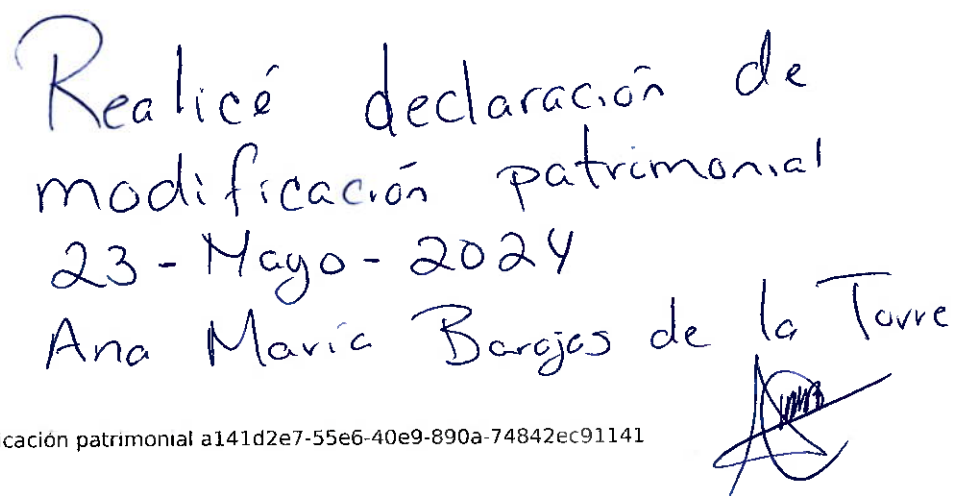 Realicé declaración de
modificación patrimonial
23 - Mayo - 2024
Ana María Barajas de la Torre
cación patrimonial a141d2e7-55e6-40e9-890a-74842ec91141